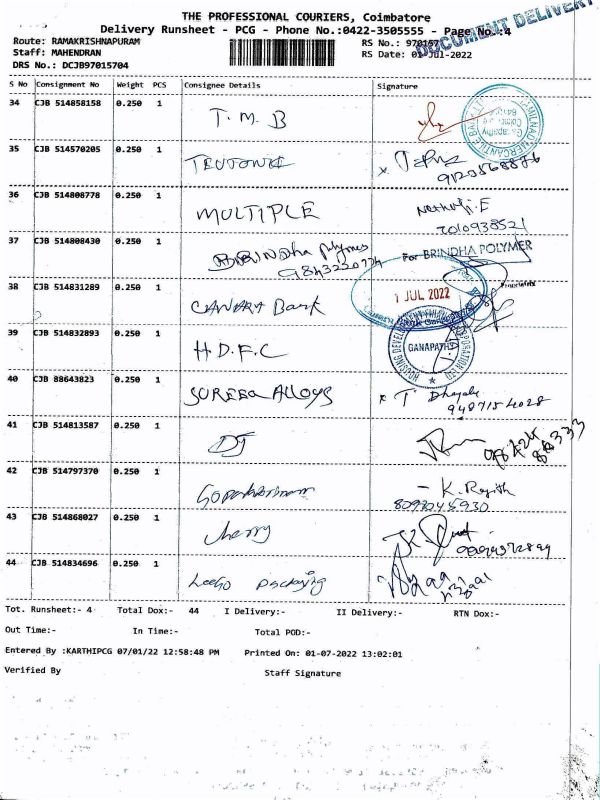 THE PROFESSIONAL COURIERS, Coimbatore
Delivery Runsheet - PCG - Phone No.:0422-3505555 - Page No.:4
DOCUMENT DELIVERY
Route: RAMAKRISHNAPURAM
RS No.:
Staff: MAHENDRAN
RS Date: 01-Jul-2022
DRS No.: DCJB97015704
S No Consignment No Weight PCS Consignee Details Signature
34 CJB 514858158 0.250 1 T.M.B
35 CJB 514570205 0.250 1
36 CJB 514808778 0.250 1 MULTIPLE
7010938521
37 CJB 514808430 0.250 1 BRINdha Polymers
9843220774
For BRINDHA POLYMER
Proprietor
38 CJB 514831289 0.250 1 CANARA Bank
1 JUL 2022
39 CJB 514832893 0.250 1 H.D.F.C
GANAPATHY
40 CJB 88643823 0.250 1 SUREEQ ALLOYS
9487154028
41 CJB 514813587 0.250 1 DJ
42 CJB 514797370 0.250 1
- K. Rejith
8093045930
43 CJB 514868027 0.250 1 cherry
44 CJB 514834696 0.250 1 LeeGo packaging
Tot. Runsheet:- 4 Total Dox:- 44 I Delivery:- II Delivery:- RTN Dox:-
Out Time:- In Time:- Total POD:-
Entered By :KARTHIPCG 07/01/22 12:58:48 PM Printed On: 01-07-2022 13:02:01
Verified By Staff Signature